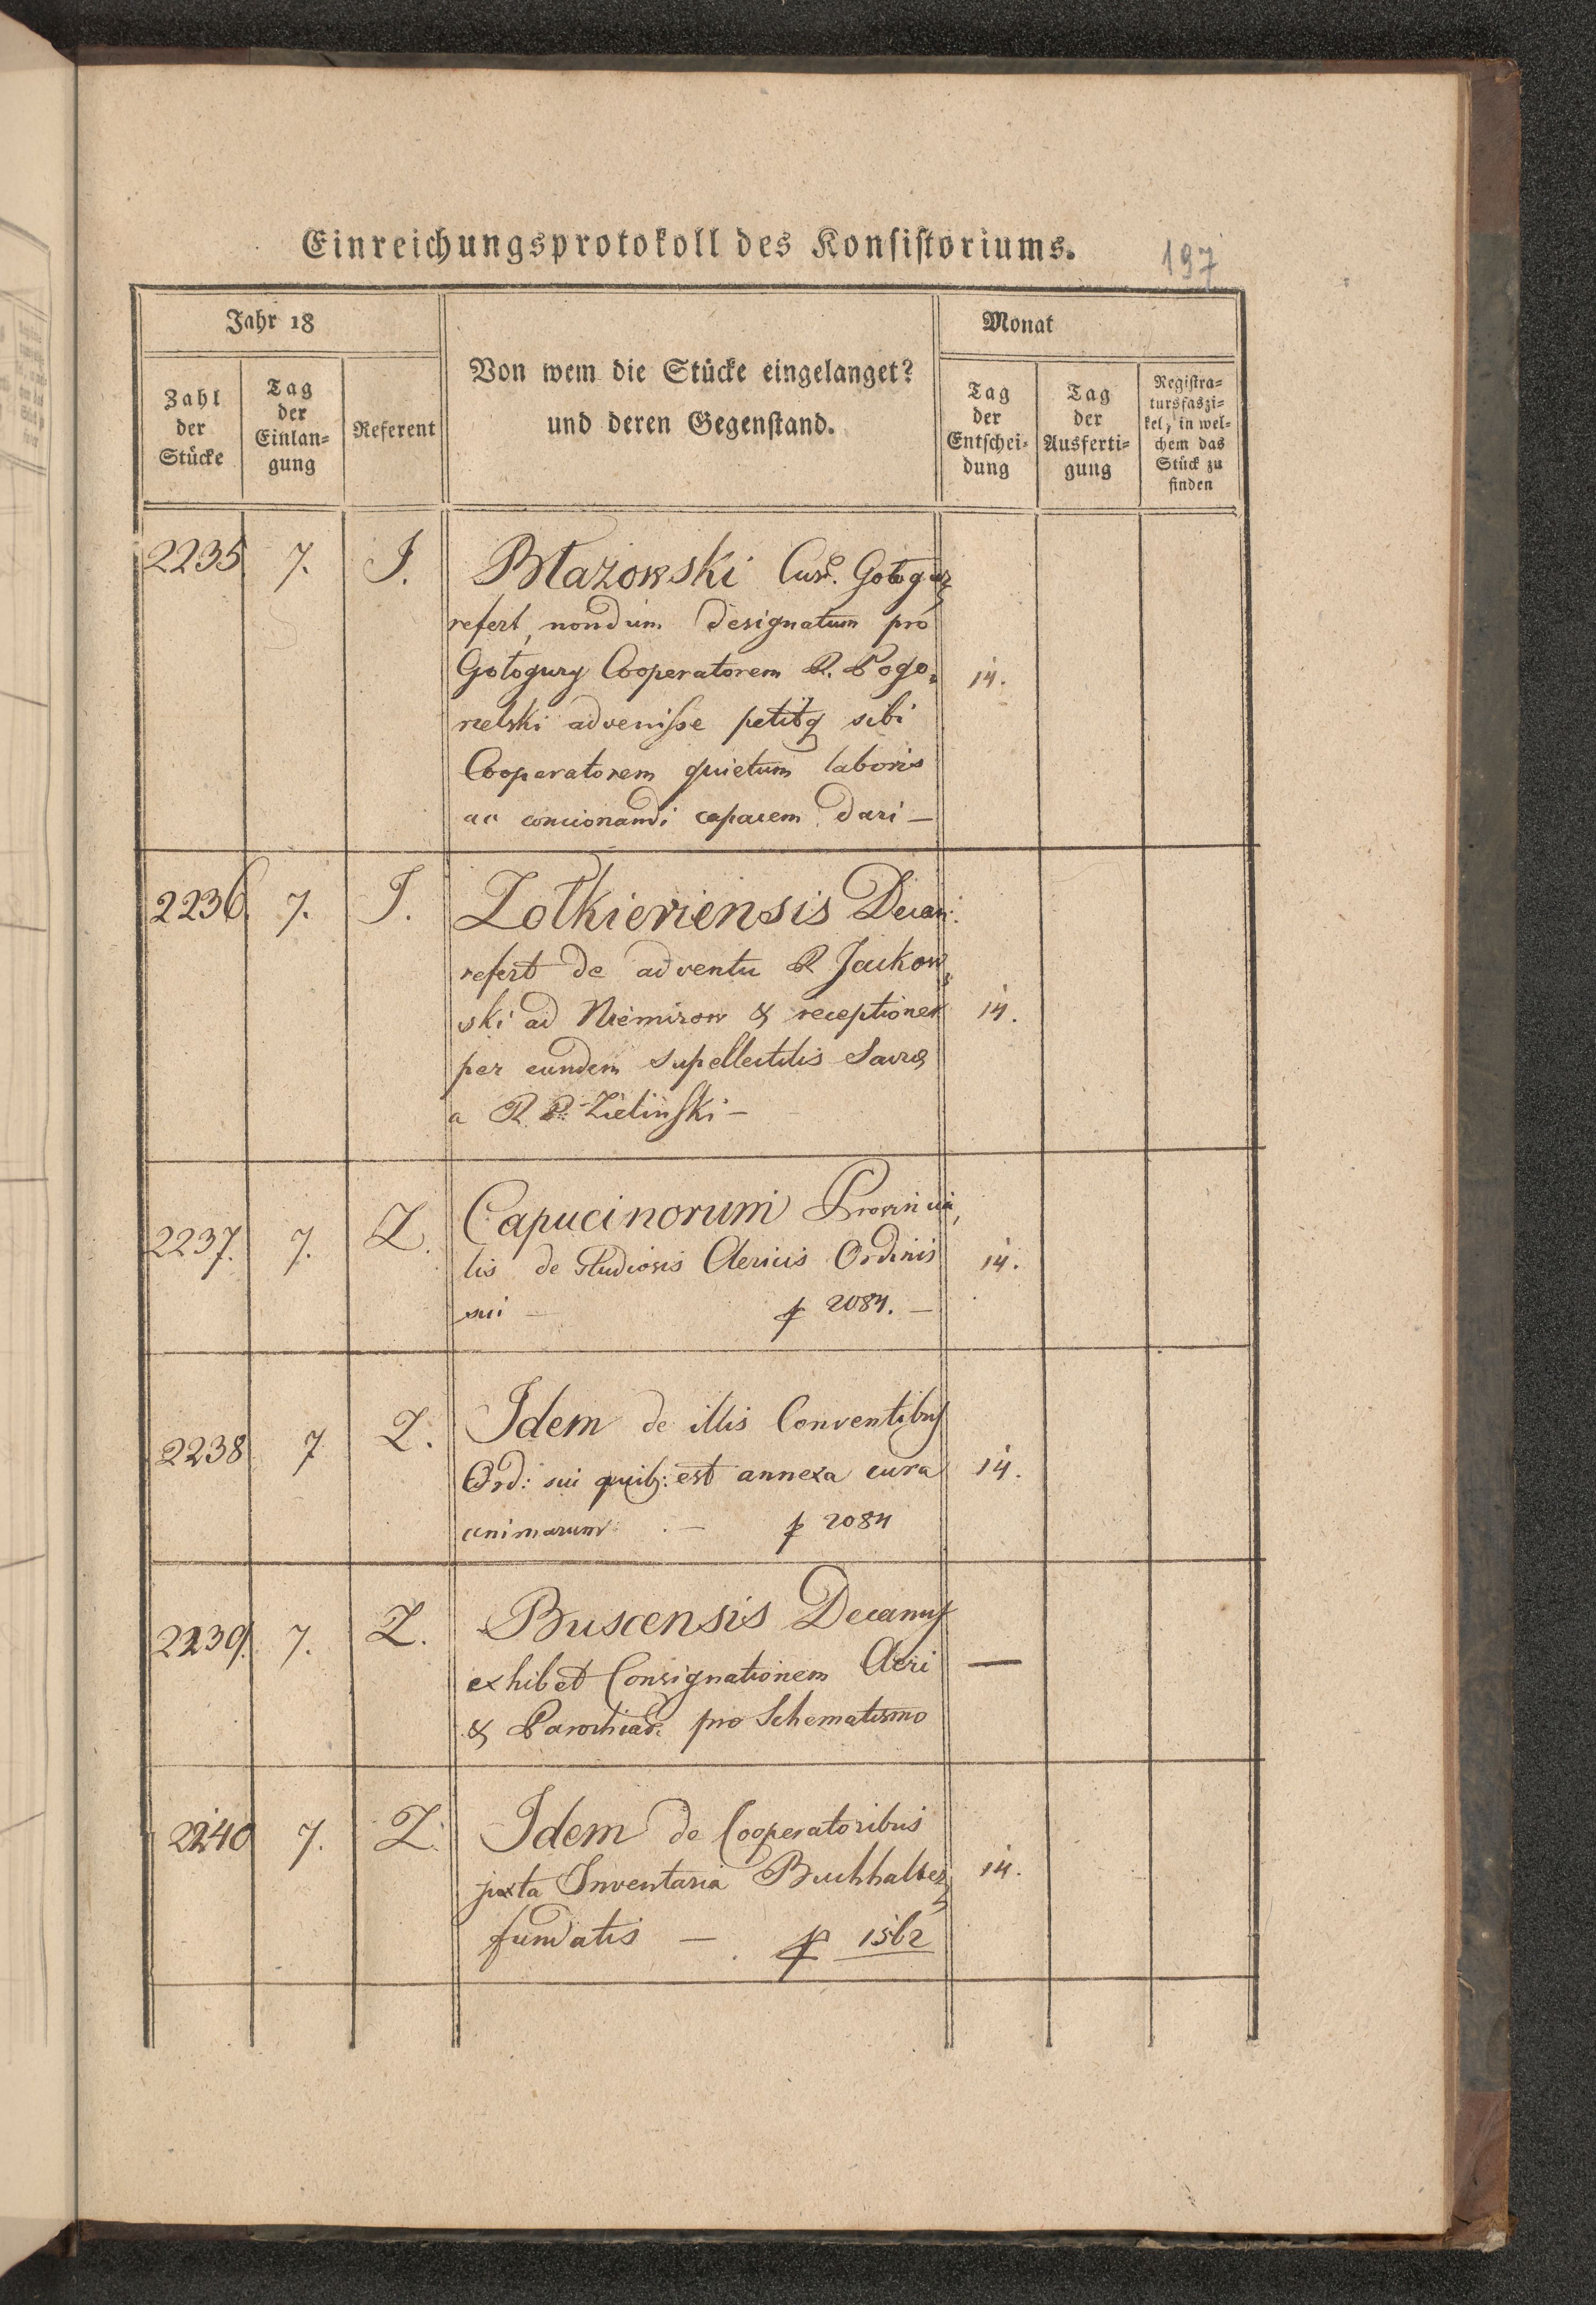 Einreichungsprotokoll des Konsistoriums.
197
Jahr 18
Monat
Zahl der Stücke
Tag der Einlan= gung
Referent
Von wem die Stücke eingelanget?
und deren Gegenstand.
Tag der Entschei= dung
Tag der Ausferti= gung
Registra= tursfaszi= kel, in wel= chem das Stück zu finden
2235. 7. J. Błazowski Cur. Gołogur
refert, nondum designatum pro
Gołogury Cooperatorem R. Pogo=
relski advenisse petitq sibi 14.
Cooperatorem quietum laboris
ac concionandi capacem dari —
2236. 7. J. Zołkieviensis Decan:
refert de adventu R Jackow=
ski ad Niemirow & receptionem 14.
per eundem supellectilis Sacræ
a R. P. Zielinski —
2237. 7. Z. Capucinorum Provincia=
lis de Studiosis Clericis Ordinis 14.
sui — p 2084. —
2238 7 Z. Idem de illis Conventibus
Ord: sui quib: est annexa cura 14.
animarum — p 2084
2239. 7. Z. Buscensis Decanus
exhibet Consignationem Cleri —
& Parochiar: pro Schematismo
2240 7. Z. Idem de Cooperatoribus
juxta Inventaria Buchhalter= 14.
fundatis — p 1562